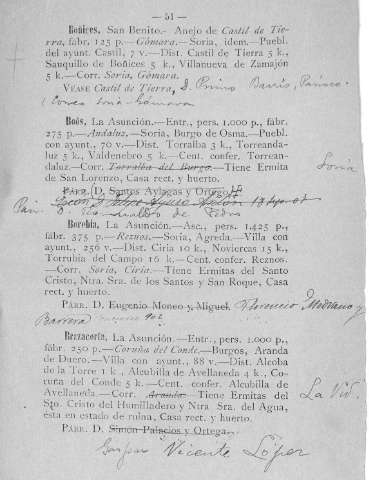 — 51 —
Boñices, San Benito.- Anejo de Castil de Tie-
rra, fabr. 125 p.—Gómara.—Soria, idem.—Puebl.
del ayunt. Castil, 7 v.—Dist. Castil de Tierra 5 k.,
Sauquillo de Boñices 5 k., Villanueva de Zamajón
5 k.—Corr. Soria, Gómara.
VÉASE Castil de Tierra, D. Primo Barrís,
Correo Soria-Gómara
Boós, La Asunción.—Entr., pers. 1.000 p., fábr.
275 p.—Andaluz.—Soria, Burgo de Osma.—Puebl.
con ayunt., 70 v.—Dist. Torralba 3 k., Torreanda-
luz 5 k., Valdenebro 5 k.—Cent. confer. Torrean-
daluz.—Corr. Torralba del Burgo.—Tiene Ermita
Soria
de San Lorenzo, Casa rect. y huerto.
PÁRR. D. Santos Aylagas y Ortega.
Pár.
D. de Pedro
Borobia, La Asunción.—Asc., pers. 1.425 p.,
fábr. 375 p.—Reznos.—Soria, Agreda.—Villa con
ayunt., 256 v.—Dist. Ciria 10 k., Noviercas 15 k.,
Torrubia del Campo 16 k.—Cent. confer. Reznos.
—Corr. Soria, Ciria.—Tiene Ermitas del Santo
Cristo, Ntra. Sra. de los Santos y San Roque, Casa
rect. y huerto.
PÁRR. D. Eugenio Moneo y Miguel. Florencio Medrano y
Barrera 902
Brazacorta, La Asunción.—Entr., pers. 1.000 p.,
fábr. 250 p.—Coruña del Conde.—Burgos, Aranda
de Duero.—Villa con ayunt., 88 v.—Dist. Alcoba
de la Torre 1 k., Alcubilla de Avellaneda 4 k., Co-
ruña del Conde 5 k.—Cent. confer. Alcubilla de
Avellaneda.—Corr. Aranda. Tiene Ermitas del
La Vid.
Sto. Cristo del Humilladero y Ntra Sra. del Agua,
ésta en estado de ruina, Casa rect. y huerto.
PÁRR. D. Simón Palacios y Ortega.
Gaspar Vicente López